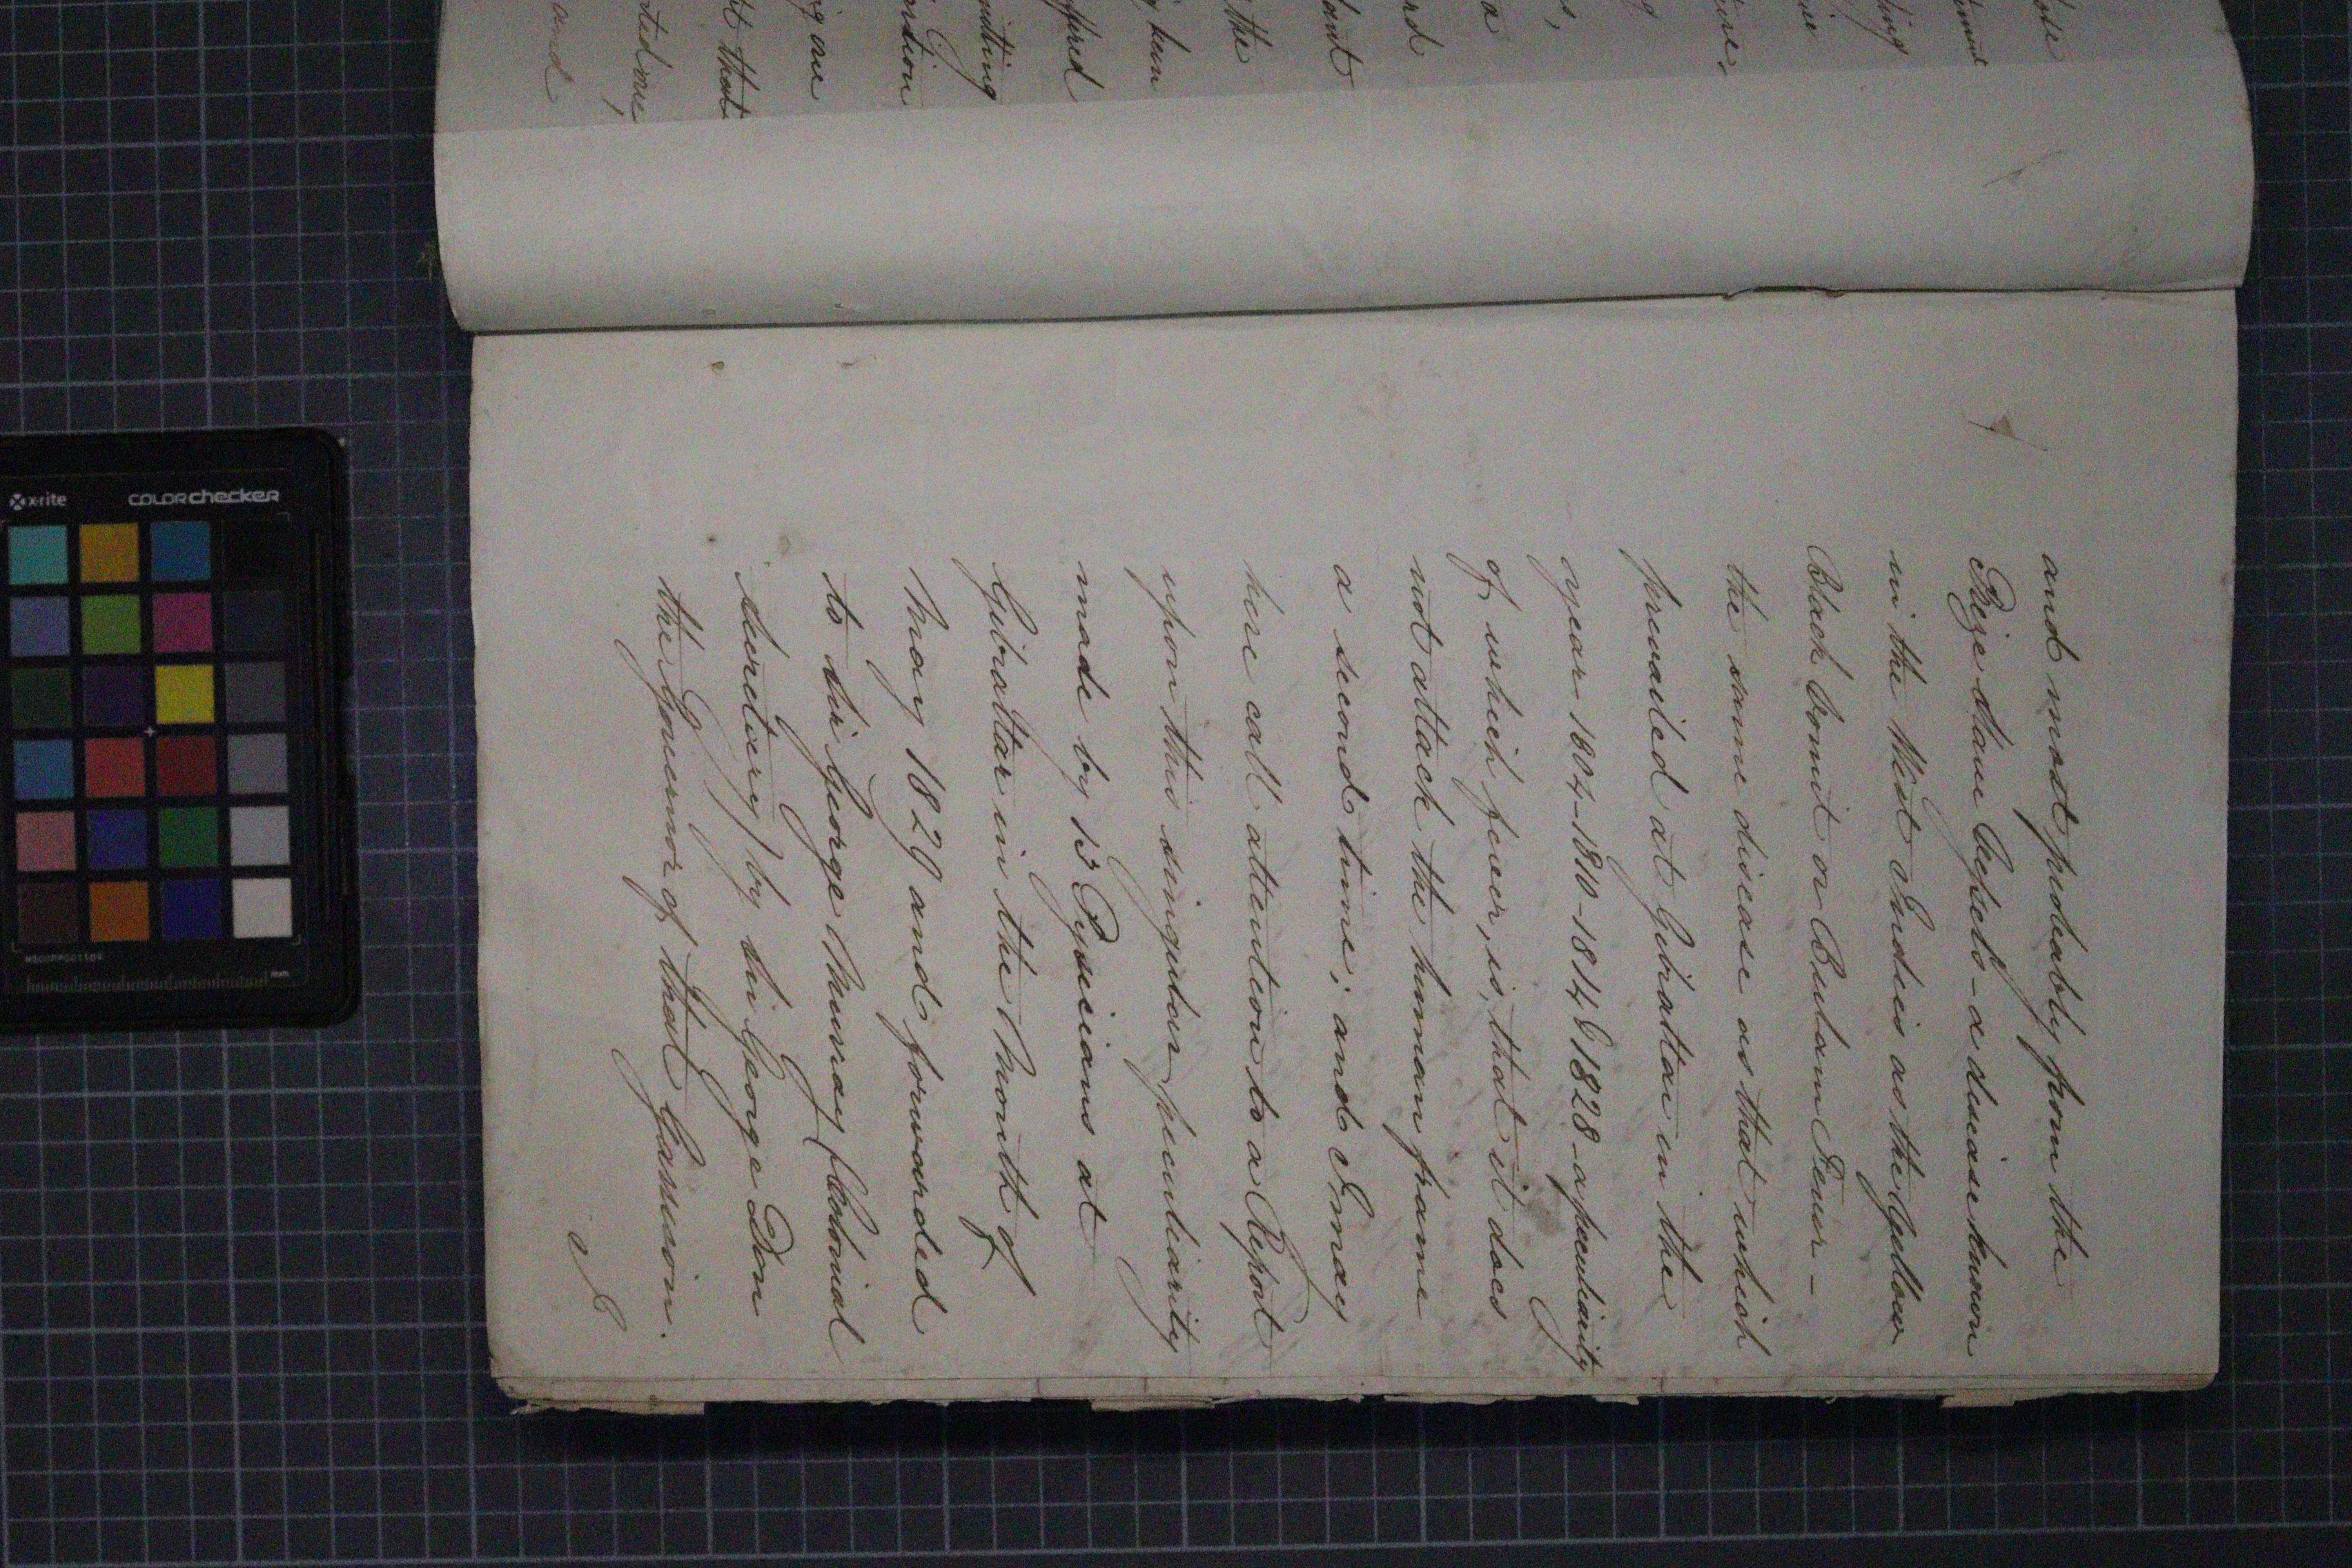 and most probably from the
Prize slave Vessels - a disease known
in the West Indies as the Yellow
Black Vomit or Bulam Fever -
the same disease as that which
prevailed at Gibraltar in the
year 1804-1810-1814 & 1828 - a peculiarity
of which fever, is, that it does
not attack the human frame
a second time; and I may
here call attention to a Report
upon this singular peculiarity
made by 13 Pysicians at
Gibraltar in the Month of
May 1829 and forwarded
to Sir George Murray (Colonial
Secretary) by Sir George Don
the Governor of that Garrison.
I
the
a
that
and
x-rite
COLORchecker
mm